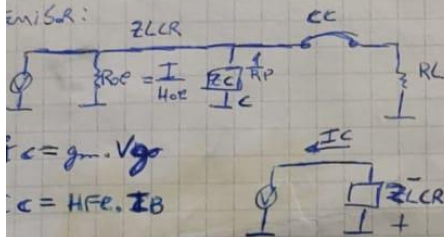 emisor:
ZLCR
CC
Roe = I / Hoe
ZC
RP
IC
RL
Ic = gm. Vgo
Ic = HFe. IB
IC
ZLCR
- +